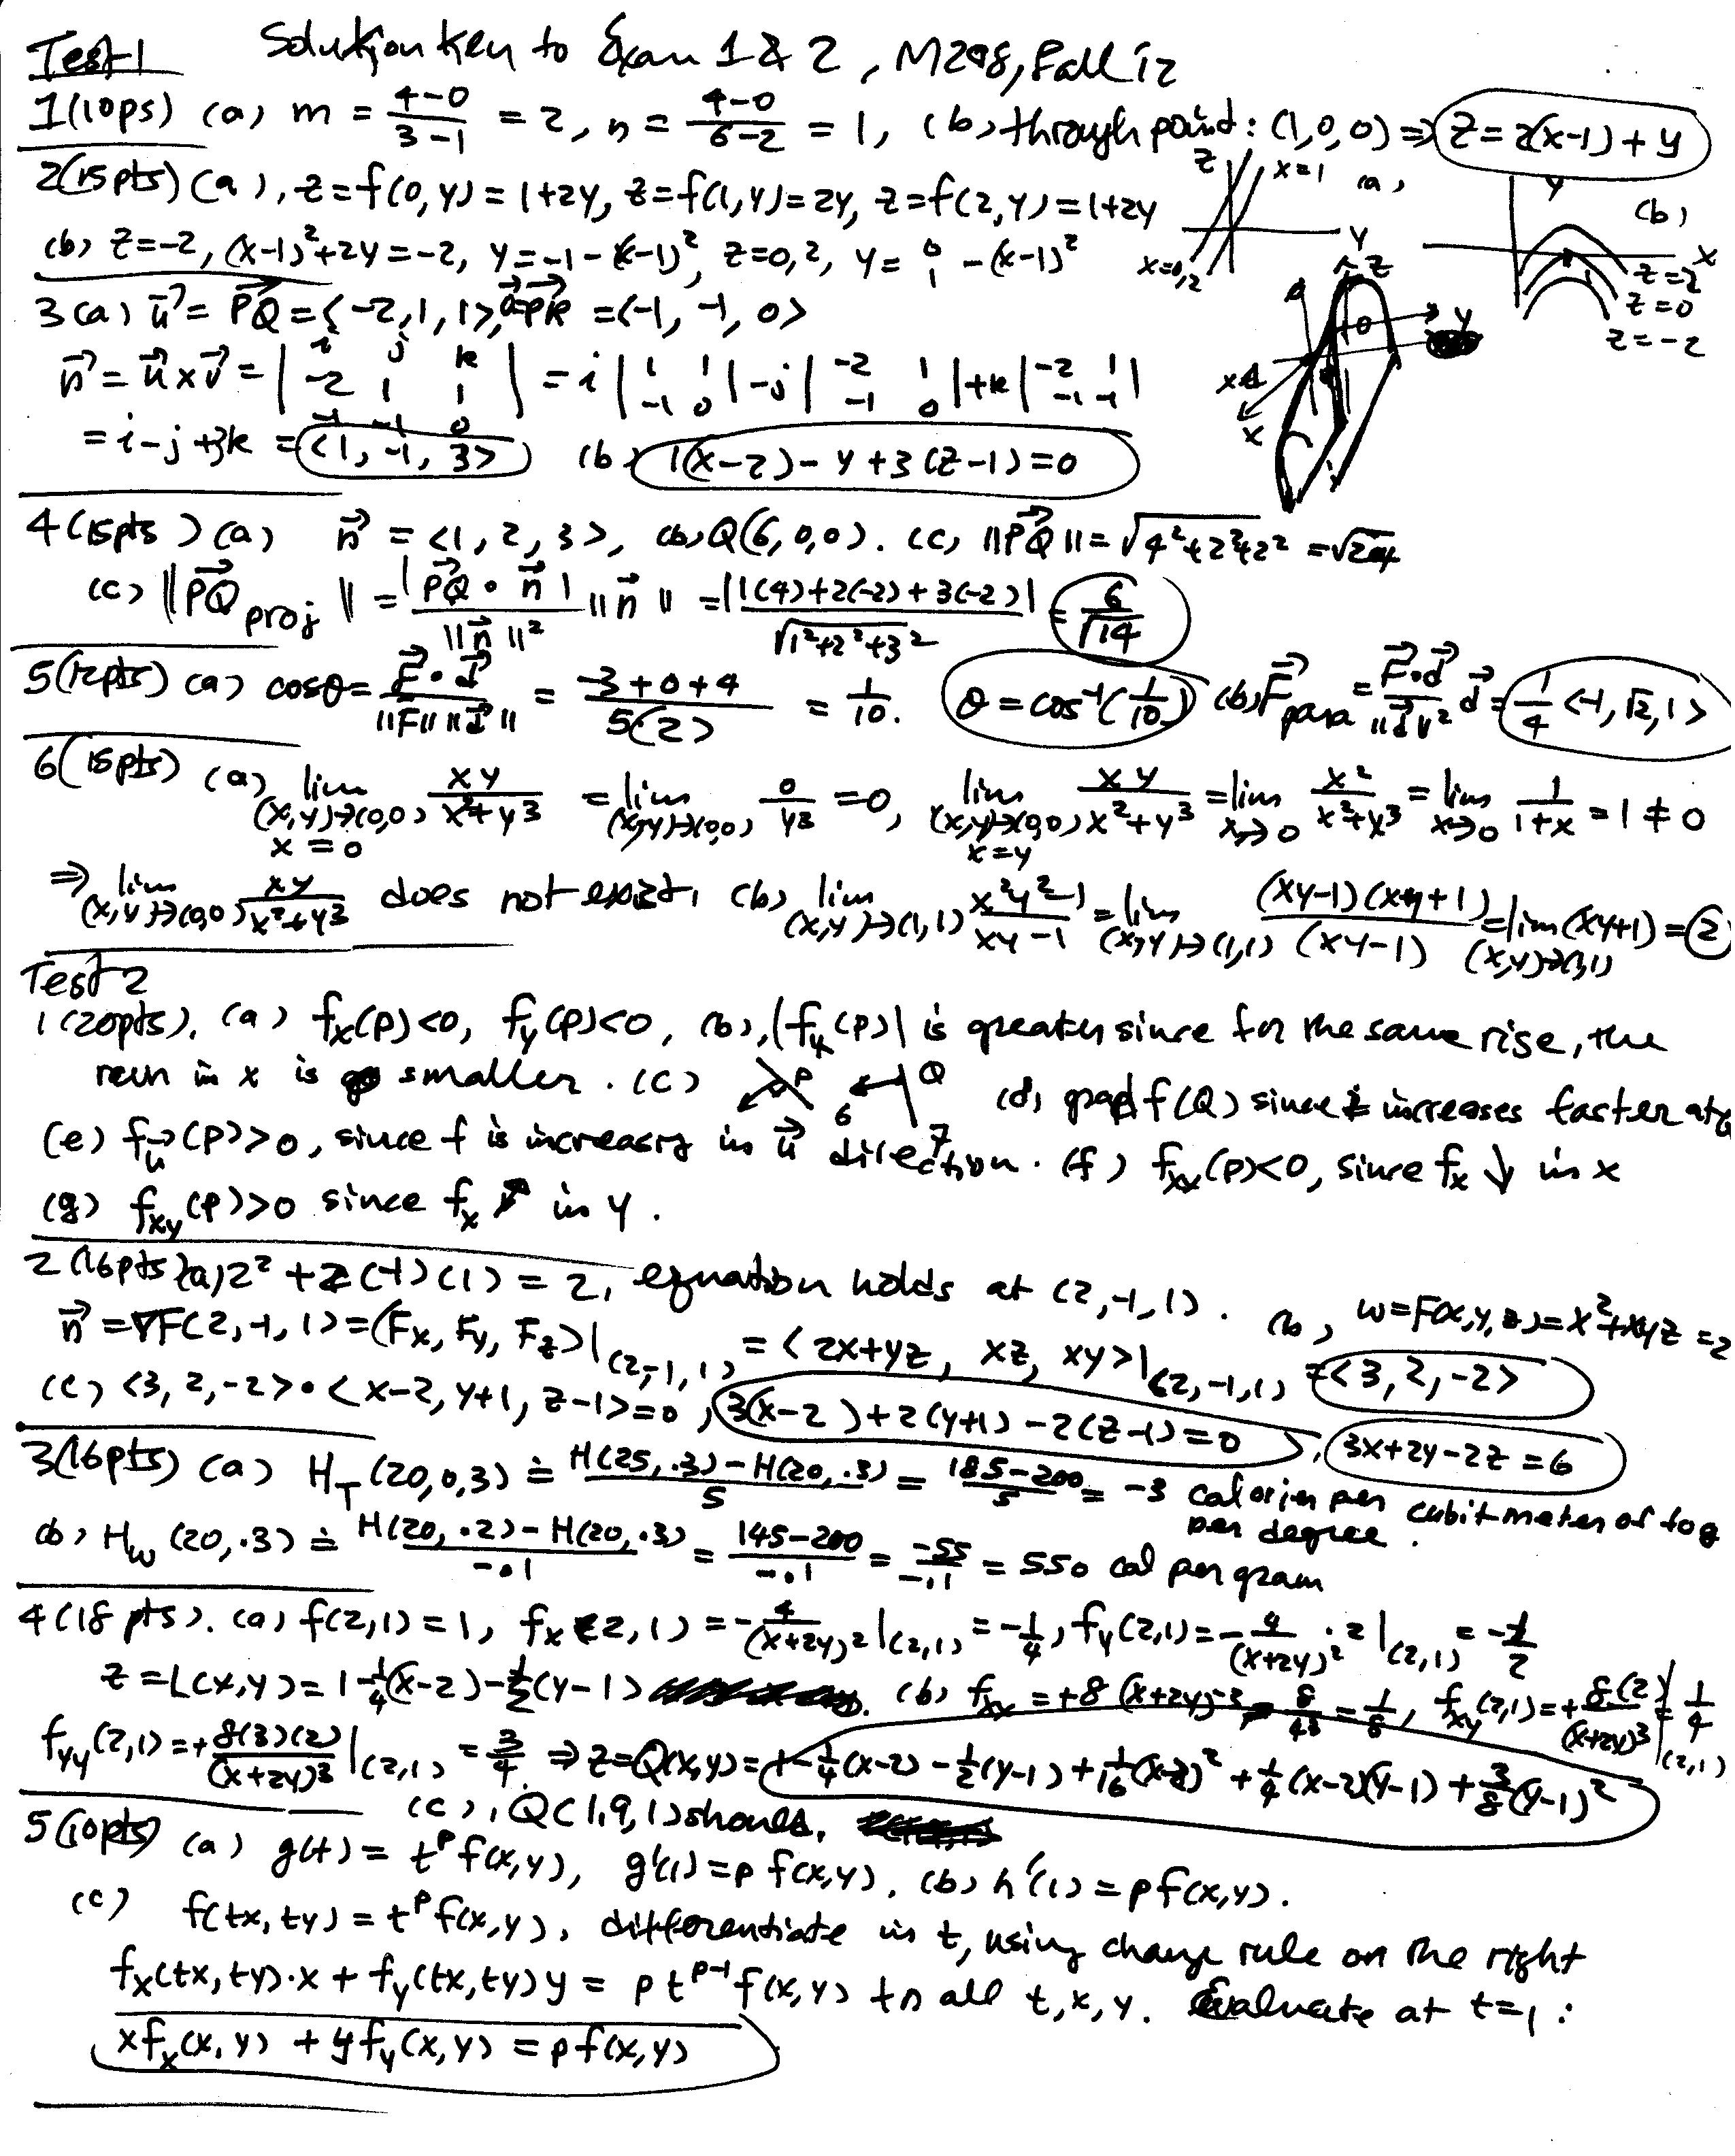 Test 1 Solution Key to Exam 1 & 2, M208, Fall 12
1(10ps) (a) m = (4-0)/(3-1) = 2, n = (4-0)/(6-2) = 1, (b) through point: (1,0,0) ⇒ z = 2(x-1) + y
2(15pts) (a), z = f(0,y) = 1+2y, z = f(1,y) = 2y, z = f(2,y) = 1+2y
z x=1 (a) y x=0,2
y (b) x z=2 z=0 z=-2
(b) z=-2, (x-1)²+2y=-2, y=-1-(x-1)², z=0,2, y= 0 1 -(x-1)²
3(a) u⃗ = PQ⃗ = <-2,1,1>, PR⃗ = <-1,-1,0>
z 0 y x
n⃗ = u⃗×v⃗ = | i j k; -2 1 1; -1 -1 0 | = i |1 1; -1 0| - j |-2 1; -1 0| + k |-2 1; -1 -1|
= i-j+3k = <1,-1,3> (b) 1(x-2) - y + 3(z-1) = 0
4(15pts) (a) n⃗ = <1,2,3>, (b) Q(6,0,0). (c) ||PQ⃗|| = √(4²+2²+2²) = √24
(c) ||PQ⃗ proj|| = |PQ⃗·n⃗|/||n⃗||² ||n⃗|| = |1(4)+2(-2)+3(-2)|/√(1²+2²+3²) = 6/√14
5(12pts) (a) cosθ = F⃗·d⃗/(||F|| ||d⃗||) = (-3+0+4)/(5(2)) = 1/10. θ = cos⁻¹(1/10) (b) F⃗para = (F⃗·d⃗/||d⃗||²) d⃗ = 1/4 <-1,√2,1>
6(15pts) (a) lim (x,y)→(0,0) x=0 xy/(x²+y³) = lim (x,y)→(0,0) 0/y³ = 0, lim (x,y)→(0,0) x=y xy/(x²+y³) = lim x→0 x²/(x²+x³) = lim x→0 1/(1+x) = 1 ≠ 0
⇒ lim (x,y)→(0,0) xy/(x²+y³) does not exist, (b) lim (x,y)→(1,1) (x²y²-1)/(xy-1) = lim (x,y)→(1,1) (xy-1)(xy+1)/(xy-1) = lim (x,y)→(1,1) (xy+1) = 2
Test 2
1(20pts). (a) fx(P)<0, fy(P)<0, (b), |fx(P)| is greater since for the same rise, the
run in x is smaller. (c) P 6 Q 7 (d) grad f(Q) since f increases faster at Q
(e) fu⃗(P)>0, since f is increasing in u⃗ direction. (f) fxx(P)<0, since fx ↓ in x
(g) fxy(P)>0 since fx ↗ in y.
2(16pts) (a) 2²+2(-1)(1) = 2, equation holds at (2,-1,1). (b) w=F(x,y,z)=x²+xyz=2
n⃗ = ∇F(2,-1,1) = (Fx, Fy, Fz>|(2,-1,1) = <2x+yz, xz, xy>|(2,-1,1) = <3,2,-2>
(c) <3,2,-2>·<x-2,y+1,z-1>=0, 3(x-2)+2(y+1)-2(z-1)=0, 3x+2y-2z=6
3(16pts) (a) HT(20,0.3) ≐ (H(25,.3)-H(20,.3))/5 = (185-200)/5 = -3 calories per cubit meter of fog
per degree.
(b) Hw(20,.3) ≐ (H(20,.2)-H(20,.3))/-.1 = (145-200)/-.1 = -55/-.1 = 550 cal per gram
4(18 pts). (a) f(2,1)=1, fx(2,1) = -4/(x+2y)²|(2,1) = -1/4, fy(2,1) = -4/(x+2y)²·2|(2,1) = -1/2
z = L(x,y) = 1-1/4(x-2)-1/2(y-1). (b) fxx = +8(x+2y)⁻³ = 8/4³ = 1/8, fxy(2,1) = +8(2)/(x+2y)³|(2,1) = 1/4
fyy(2,1) = +8(3)(2)/(x+2y)³|(2,1) = 3/4 ⇒ z=Q(x,y) = 1-1/4(x-2)-1/2(y-1)+1/16(x-2)²+1/4(x-2)(y-1)+3/8(y-1)²
(c), Q(1.9,1) should.
5(10pts) (a) g(t) = t^p f(x,y), g'(1) = p f(x,y). (b) h'(1) = p f(x,y).
(c) f(tx,ty) = t^p f(x,y), differentiate in t, using change rule on the right
fx(tx,ty)·x + fy(tx,ty)y = p t^(p-1) f(x,y) for all t,x,y. Evaluate at t=1:
xfx(x,y) + yfy(x,y) = pf(x,y)